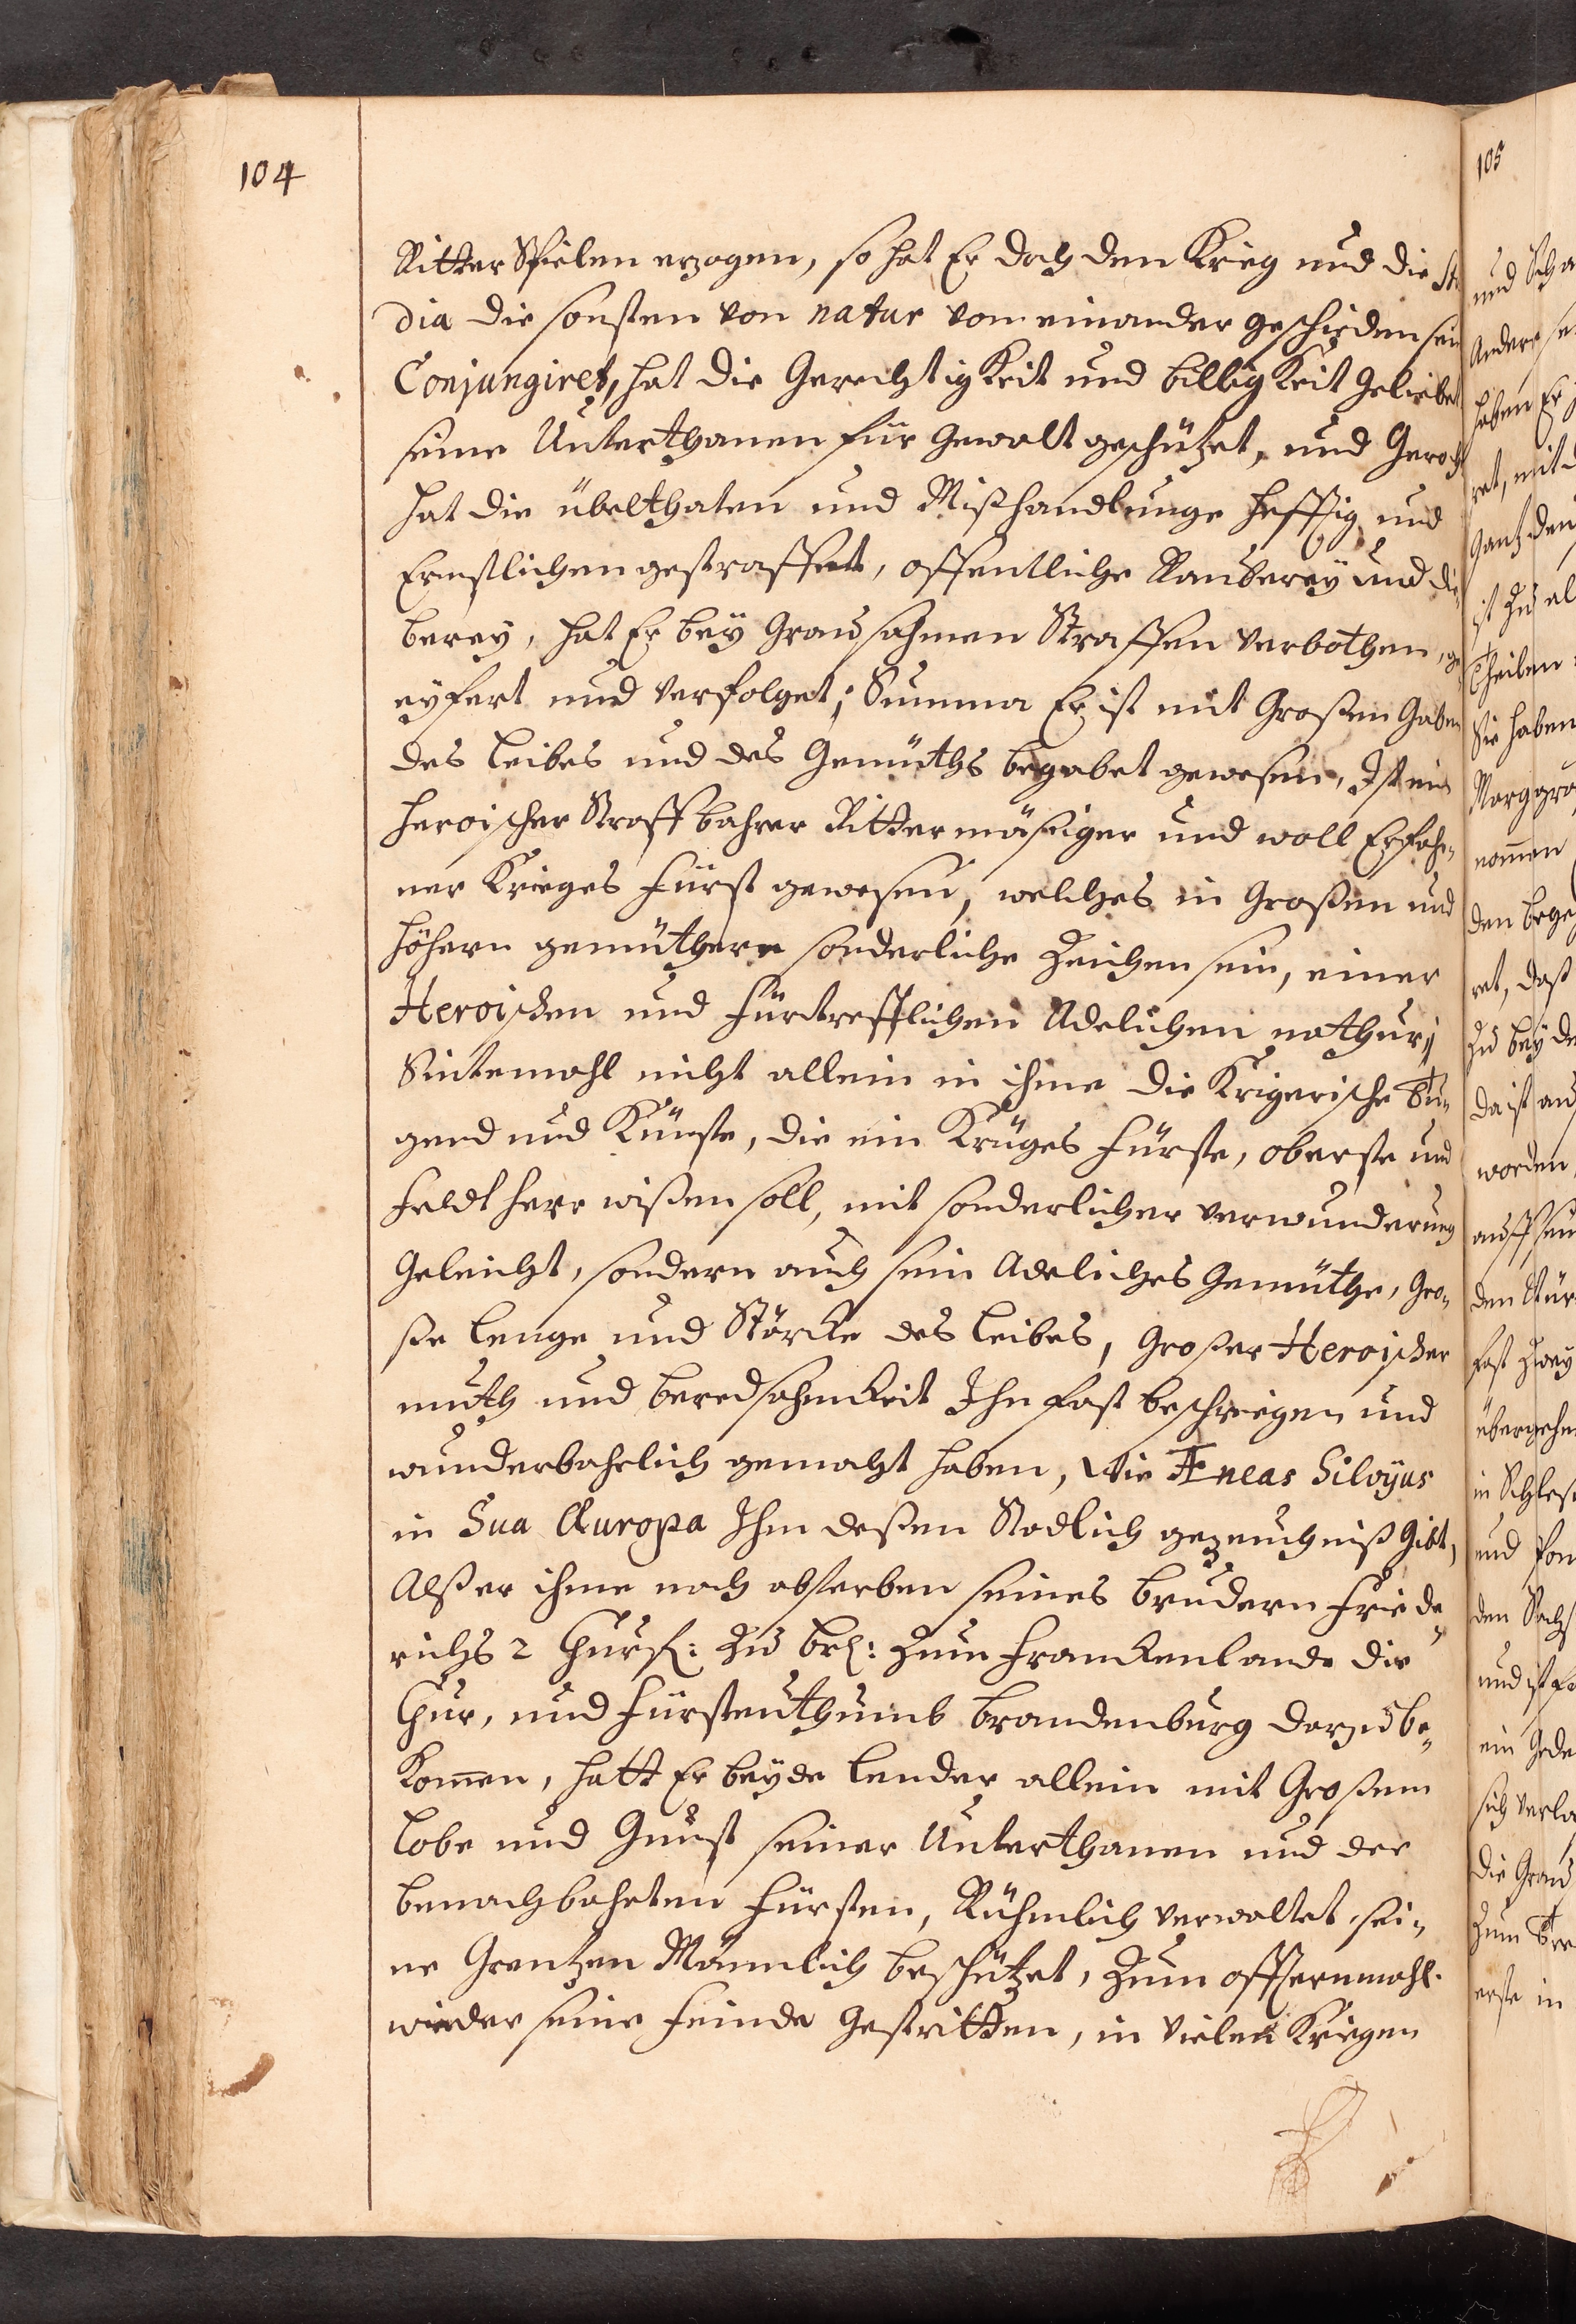 104
Ritter Spielen erzogen, so hat Er doch den Krieg und die Stu
dia die sonsten von natur von einander geschieden sein
Conjungiret, hat die Gerechtigkeit und billigkeit geliebet
seine Unterthanen für gewalt geschützet, und Geroch
hat die übelthaten und Mißhandlunge hefftig und
Ernstlichen gestraffet, offentliche Rauberey und die
berey, hat Er bey Grausahmen Straffen verbothen, ge
eyfert und verfolget; Summa Er ist mit Großen Gaben
des leibes und des Gemüths begabet gewesen, Ist ein
heroischer Straffbahrer Rittermäßiger und woll Erfahr„
ner Krieges Fürst gewesen, welches in Großen und
höhern gemüthern sonderliche Zeichen sein, einer
Heroischen und fürtrefflichen Adelichen nathur,
Sintemahl nicht allein in ihme die Krigerische Tu„
gend und Künste, die ein Krüges Fürste, oberste und
Feldtherr wißen soll, mit sonderlicher verwunderung
Geleucht, sondern auch sein Adeliches Gemüthe, Gro„
ße lenge und Störcke des leibes, Großer Heroischer
muth und beredsahmkeit Ihn fast beschreigen und
wunderbahrlich gemacht haben, Wie Æneas Silvÿus
in Sua Æuropa Ihm deßen Stadlich gezeuchniß Gibt,
Alß er ihme nach absterben seines brudern Friede„
richs 2 Churf: Zu br: Zum Franckenlande die
Chur, und Fürstenthumb brandenburg darzu be„
kom̄en, hatt Er beyde lender allein mit Großem
lobe und Gunst seiner Unterthanen und der
benachbahrten Fürsten, Rühmlich verwaltet, sei„
ne Grentzen Männlich beschützet, Zum offternmahl.
wieder seine Feinde Gestritten, in vielen Kriegen
105
und Scha
Andere se
haben Er
ret, mit
Gantz den
ist Zu al
Theilen
Sie haben
Marggra
nom̄en
den bege
ret, daß
Zu beyde
da ist au
worden,
auff sein
den Tür
fast Zwey
übergehn
in Schles
und Pom
den Sachs
und ist
ein Gede
sich verla
die Grau
Zum
erste in